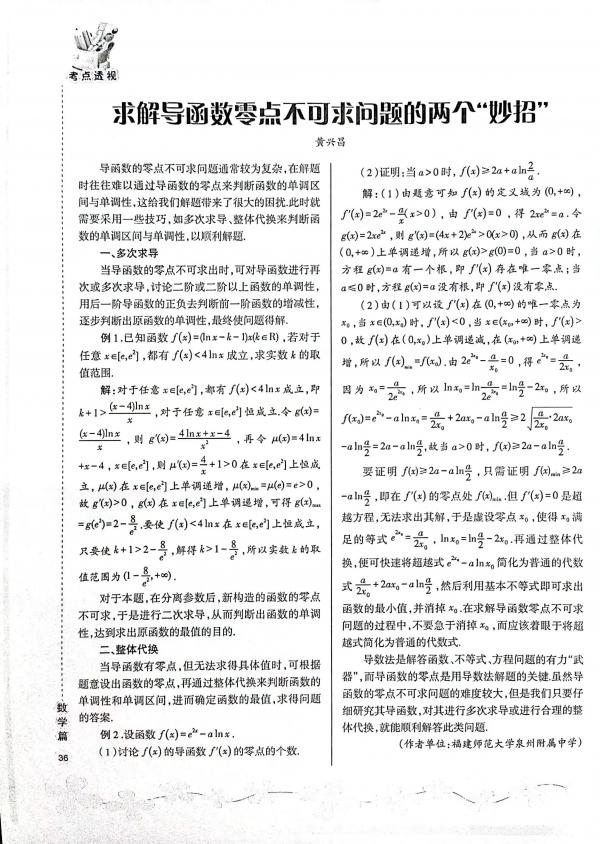 考点透视
求解导函数零点不可求问题的两个“妙招”
黄兴昌
导函数的零点不可求问题通常较为复杂,在解题
时往往难以通过导函数的零点来判断函数的单调区
间与单调性,这给我们解题带来了很大的困扰.此时就
需要采用一些技巧,如多次求导、整体代换来判断函
数的单调区间与单调性,以顺利解题.
一、多次求导
当导函数的零点不可求出时,可对导函数进行再
次或多次求导,讨论二阶或二阶以上函数的单调性,
用后一阶导函数的正负去判断前一阶函数的增减性,
逐步判断出原函数的单调性,最终使问题得解.
例1.已知函数 f(x)=(lnx-k-1)x(k∈R),若对于
任意 x∈[e,e²],都有 f(x)<4lnx 成立,求实数 k 的取
值范围.
解:对于任意 x∈[e,e²],都有 f(x)<4lnx 成立,即
k+1>(x-4)lnx/x,对于任意 x∈[e,e²] 恒成立.令 g(x)=
(x-4)lnx/x,则 g′(x)=(4lnx+x-4)/x²,再令 μ(x)=4lnx
+x-4,x∈[e,e²],则 μ′(x)=4/x+1>0 在 x∈[e,e²] 上恒成
立,μ(x) 在 x∈[e,e²] 上单调递增,μ(x)min=μ(e)=e>0,
故 g′(x)>0,g(x) 在 x∈[e,e²] 上单调递增,可得 g(x)max
=g(e²)=2-8/e².要使 f(x)<4lnx 在 x∈[e,e²] 上恒成立,
只要使 k+1>2-8/e²,解得 k>1-8/e²,所以实数 k 的取
值范围为 (1-8/e²,+∞).
对于本题,在分离参数后,新构造的函数的零点
不可求,于是进行二次求导,从而判断出函数的单调
性,达到求出原函数的最值的目的.
二、整体代换
当导函数有零点,但无法求得具体值时,可根据
题意设出函数的零点,再通过整体代换来判断函数的
单调性和单调区间,进而确定函数的最值,求得问题
的答案.
例2.设函数 f(x)=e²ˣ-alnx.
(1)讨论 f(x) 的导函数 f′(x) 的零点的个数.
(2)证明:当 a>0 时,f(x)≥2a+aln2/a.
解:(1)由题意可知 f(x) 的定义域为 (0,+∞),
f′(x)=2e²ˣ-a/x(x>0),由 f′(x)=0,得 2xe²ˣ=a.令
g(x)=2xe²ˣ,则 g′(x)=(4x+2)e²ˣ>0(x>0),从而 g(x) 在
(0,+∞) 上单调递增,所以 g(x)>g(0)=0,当 a>0 时,
方程 g(x)=a 有一个根,即 f′(x) 存在唯一零点;当
a≤0 时,方程 g(x)=a 没有根,即 f′(x) 没有零点.
(2)由(1)可以设 f′(x) 在 (0,+∞) 的唯一零点为
x₀,当 x∈(0,x₀) 时,f′(x)<0,当 x∈(x₀,+∞) 时,f′(x)>
0,故 f(x) 在 (0,x₀) 上单调递减,在 (x₀,+∞) 上单调递
增,所以 f(x)min=f(x₀).由 2e^(2x₀)-a/x₀=0,得 e^(2x₀)=a/(2x₀),
因为 x₀=a/(2e^(2x₀)),所以 lnx₀=ln a/(2e^(2x₀))=ln a/2-2x₀,所以
f(x₀)=e^(2x₀)-alnx₀=a/(2x₀)+2ax₀-aln a/2≥2√(a/(2x₀)·2ax₀)
-aln a/2=2a-aln a/2,故当 a>0 时,f(x)≥2a-aln a/2.
要证明 f(x)≥2a-aln a/2,只需证明 f(x)min≥2a
-aln a/2,即在 f′(x) 的零点处 f(x)min.但 f′(x)=0 是超
越方程,无法求出其解,于是虚设零点 x₀,使得 x₀ 满
足的等式 e^(2x₀)=a/(2x₀),lnx₀=ln a/2-2x₀.再通过整体代
换,便可快速将超越式 e^(2x₀)-alnx₀ 简化为普通的代数
式 a/(2x₀)+2ax₀-aln a/2,然后利用基本不等式即可求出
函数的最小值,并消掉 x₀.在求解导函数零点不可求
问题的过程中,不要急于消掉 x₀,而应该着眼于将超
越式简化为普通的代数式.
导数法是解答函数、不等式、方程问题的有力“武
器”,而导函数的零点是用导数法解题的关键.虽然导
函数的零点不可求问题的难度较大,但是我们只要仔
细研究其导函数,对其进行多次求导或进行合理的整
体代换,就能顺利解答此类问题.
(作者单位:福建师范大学泉州附属中学)
数学篇
36